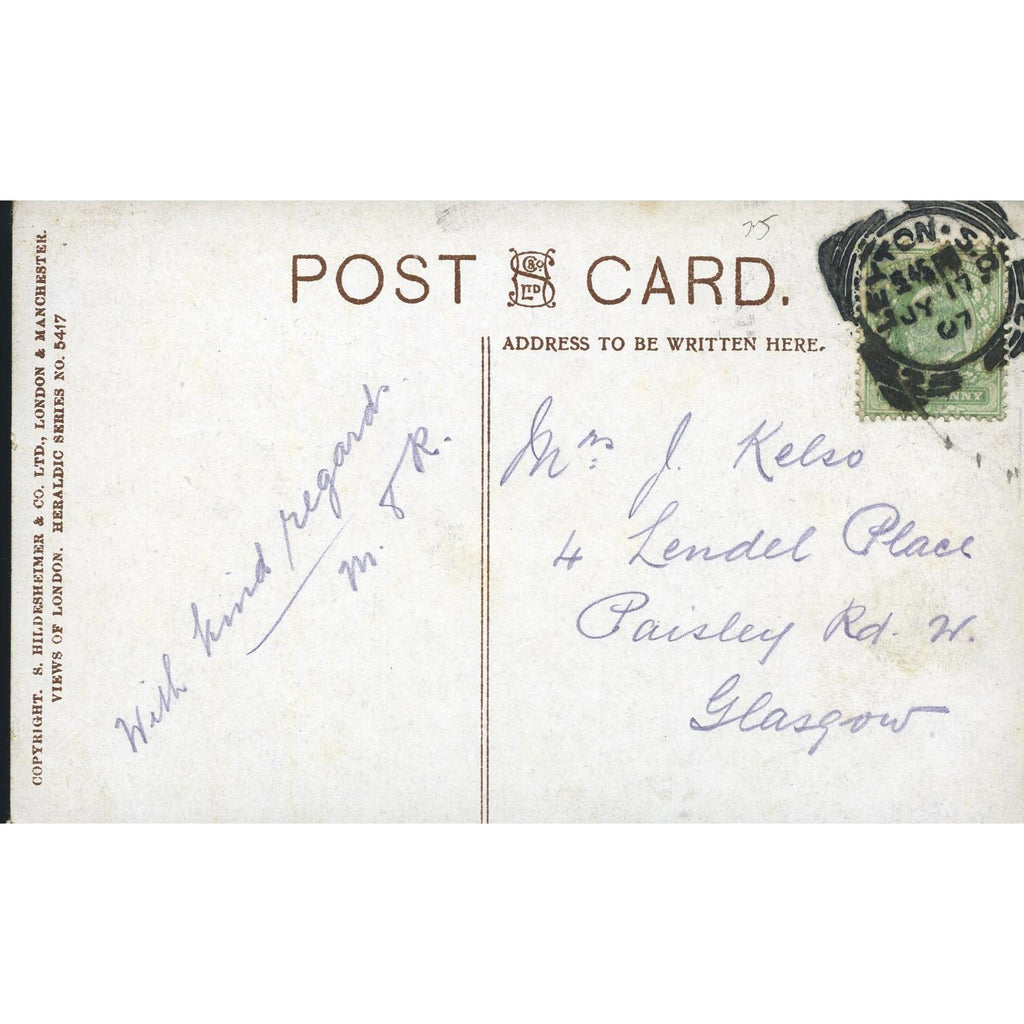 COPYRIGHT. S. HILDESHEIMER & CO. LTD., LONDON & MANCHESTER.
VIEWS OF LONDON. HERALDIC SERIES NO. 5417
POST CARD.
S H & Co LTD
25
ADDRESS TO BE WRITTEN HERE.
LEYTON · S.O.
JY 17
07
PENNY
With kind regards
M. & R.
Mrs J. Kelso
4 Lendel Place
Paisley Rd. W.
Glasgow.